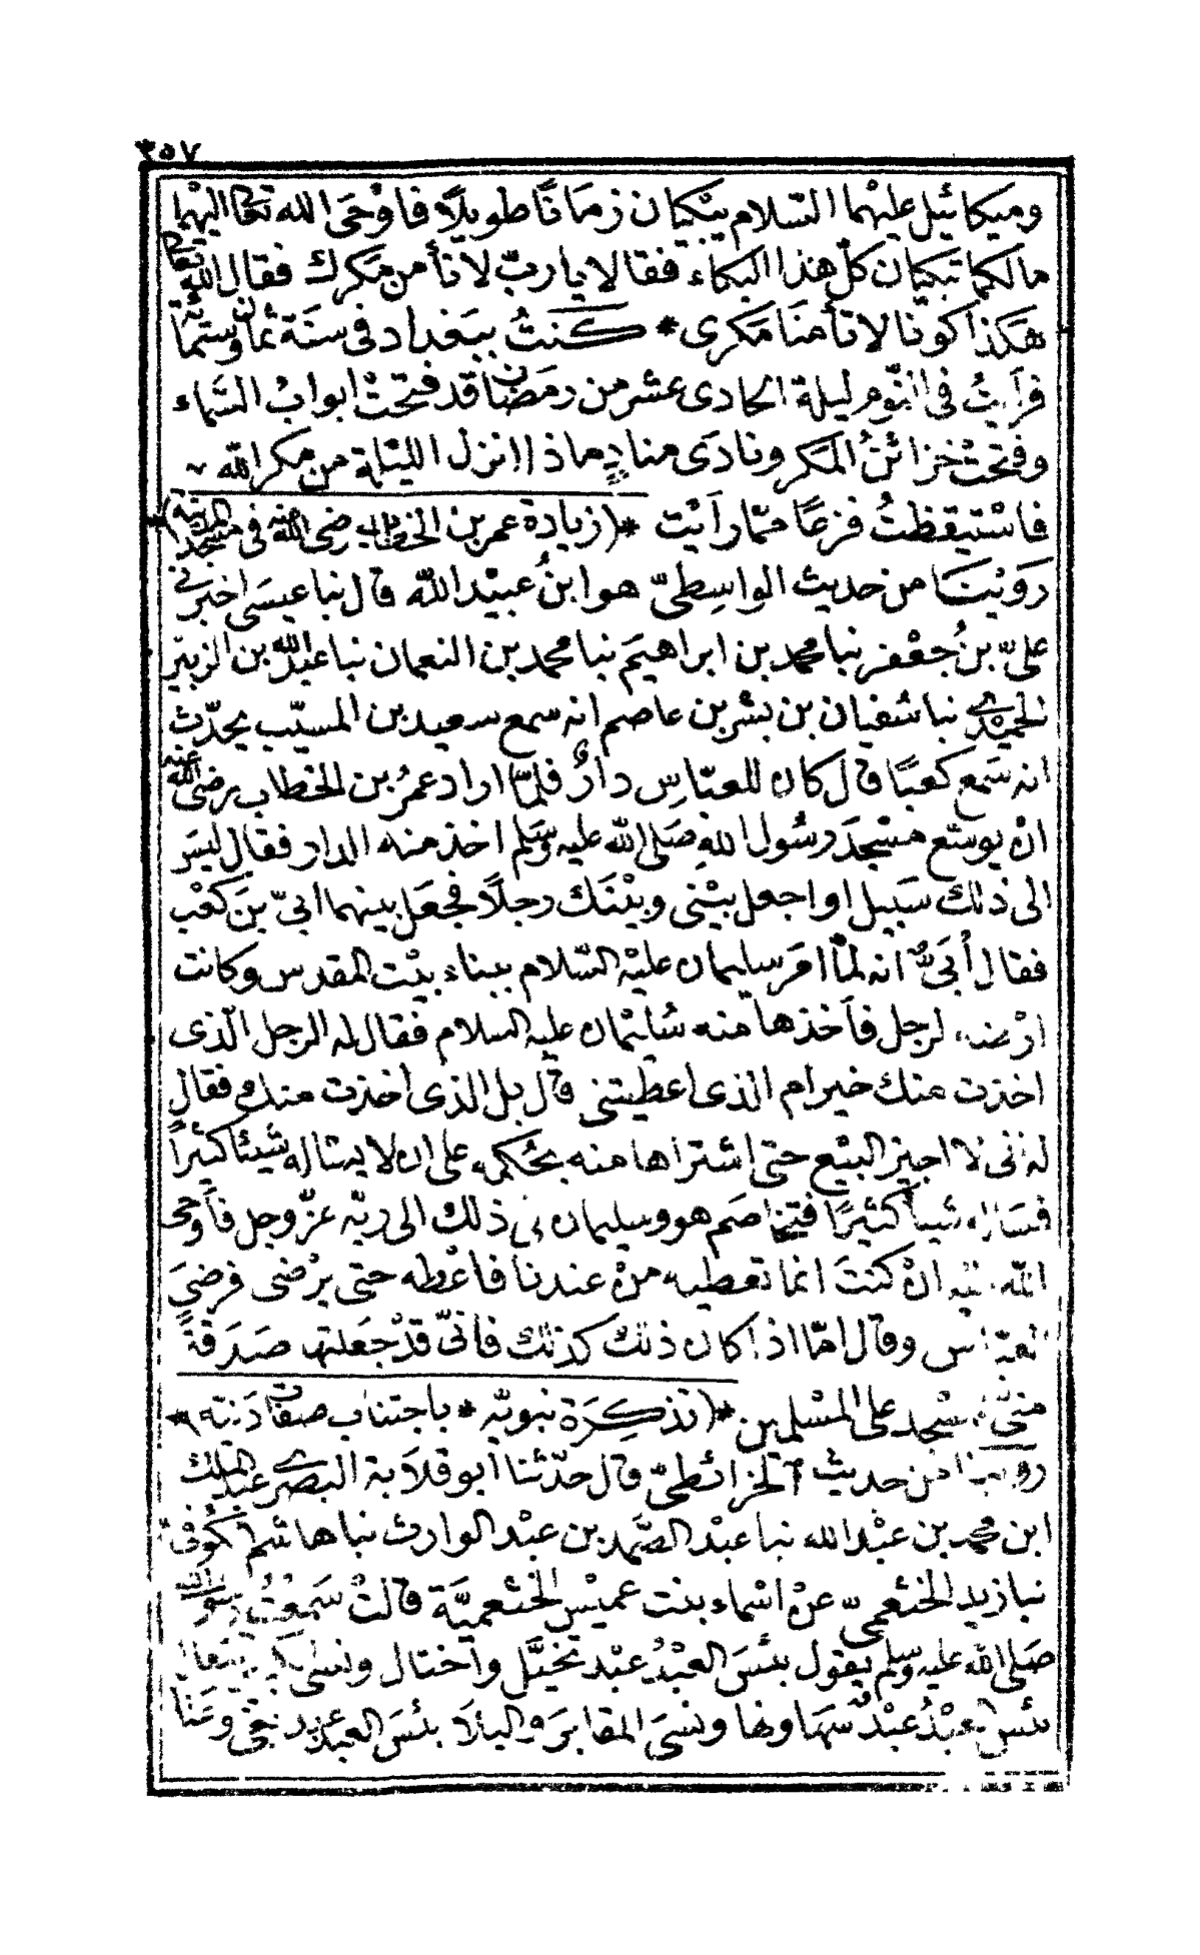 ٣٥٧
وميكائيل عليهما السّلام يبكيان زمانًا طويلاً فاوْحَى الله تعالى اليهما
مالكما تبكيان كلّ هذا البكاء فقالا يا ربّ لا نأمن مَكرك فقال الله تعالى
هَكذا كونا لا تأمنَا مَكرِى * كنتُ ببَغداد فى سنَة ثمان وستمائة
فرأيتُ فى النّوم ليلة الحادى عشر من رمضان قد فتحَتْ ابوابُ السَّماء
وفتحَتْ خزائنُ المَكر ونادَى منادٍ ماذا انزل الليْلة من مكر الله
فاسْتيقظتُ فزعًا ممّا رأيْت * (زيادة عمر بن الخطاب رضى الله عنه فى مسْجد المدينة)
رَوَيْنَا من حديث الواسِطىّ هو ابنُ عبيْد الله قال نبا عيسَى اخبرنى
علىّ بنُ جعْفر نبا محمد بن ابراهيمَ نبا محمد بن النعمان نبا عبد الله بن الزبير
الحميْدى نبا سُفيان بن بشر بن عاصم انه سمع سعيد بن المسيّب يحدّث
انه سَمع كعبًا قال كان للعبّاسِ دارٌ فلمّا اراد عمرُ بن الخطاب رضى الله عنه
انْ يوسّع مسْجدَ رسُول اللهِ صَلى الله عليه وسَلم اخذ منه الدار فقال ليسَ
الى ذلك سَبيل اواجعل بيْنى وبيْنَك رجلاً فجعَل بينهما ابىّ بنَ كعْب
فقال أبَىّ انه لمّا امَر سليمان عليْه السّلام ببناء بيْت المقدس وكانت
ارْضه لرجل فأخذها منه سُليْمان عليه السلام فقال له الرجل الّذى
اخذت منك خير ام الذى اعطيتنى قال بل الذى اخذت منك فقال
له انى لا اجيز البيْع حتى اشتراها منه بحُكمه على ان لا يسْاله شيئًا كثيرًا
فسَاله شيئاً كثيرًا فتخاصَم هو وسليمان فى ذلك الى ربّه عزّ وجل فأوحَى
الله اليْه انْ كنتَ انما تعطيه منْ عندنا فاعْطه حتى يرْضى فرضىَ
العبّاس وقال امّا اذا كان ذلك كذلك فانّى قدْ جَعلتها صَدَقةً
منّى مسْجد على المسْلمين * (تذكِرَة نبويّه * باجتناب صفات دَنيّه) *
روينا من حديث الخرائطىّ قال حدّثنا ابو قلاَبة البصرى عبد الملك
ابن محمد بن عبْد الله نبا عبْد الصَّمد بن عبْد الوارث نبا هاشم الكوُفىّ
نبا زيد الخثعمىّ عنْ اسْماء بنت عميْس الخثعميَّة قالتْ سَمعْتُ رسُول الله
صَلى الله عليه وسلم يقول بئسَ العبْدُ عبْد تخيَّل واختال ونسى الكبير المتعال
بئسَ العبْدُ عبْد سَها ولها ونسىَ المقابرَ والبلاَ بئسَ العبد عبد بغى وعَتا